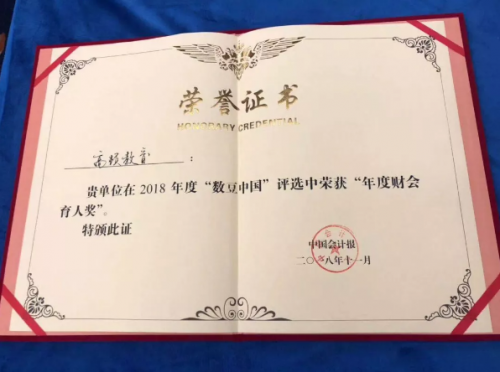 荣誉证书
HONORARY CREDENTIAL
高顿教育：
贵单位在2018年度“数豆中国”评选中荣获“年度财会
育人奖”。
特颁此证
中国会计报
二〇一八年十一月